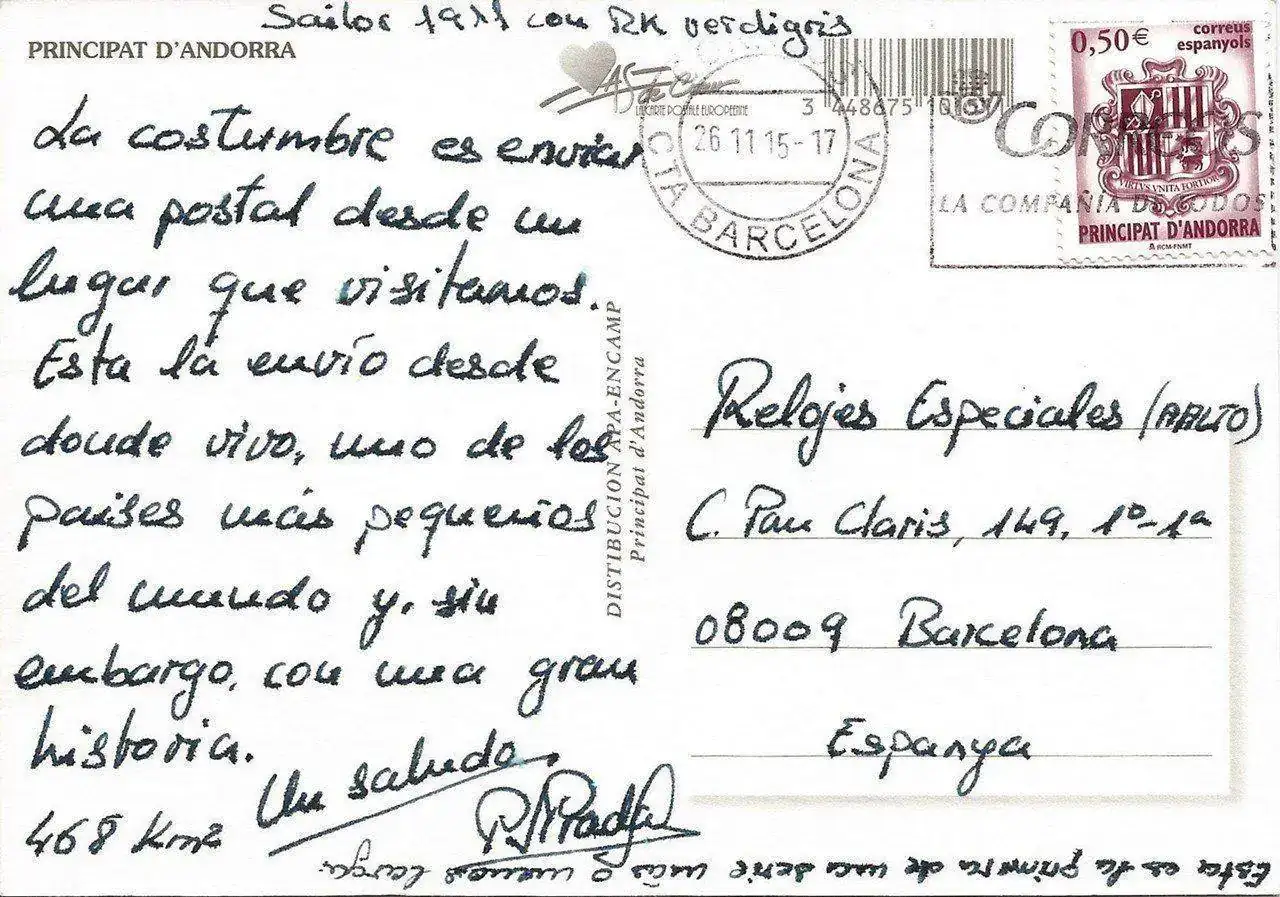 Sailor 1911 con RK verdigris
PRINCIPAT D'ANDORRA
La costumbre es enviar
una postal desde un
lugar que visitamos.
Esta la envío desde
donde vivo, uno de los
países más pequeños
del mundo y, sin
embargo, con una gran
historia.
Un saludo.
468 Km2
Esta es la primera de una serie más o menos larga.
DISTIBUCION APA-ENCAMP
Principat d'Andorra
LA CARTE POSTALE EUROPEENNE
3 448675
26 11 15-17
CTA BARCELONA
CORREOS
LA COMPAÑIA DE TODOS
0,50€
correus
espanyols
VIRTVS VNITA FORTIOR
PRINCIPAT D'ANDORRA
RCM-FNMT
Relojes Especiales (AALTO)
C. Pau Claris, 149, 1º-1ª
08009 Barcelona
Espanya